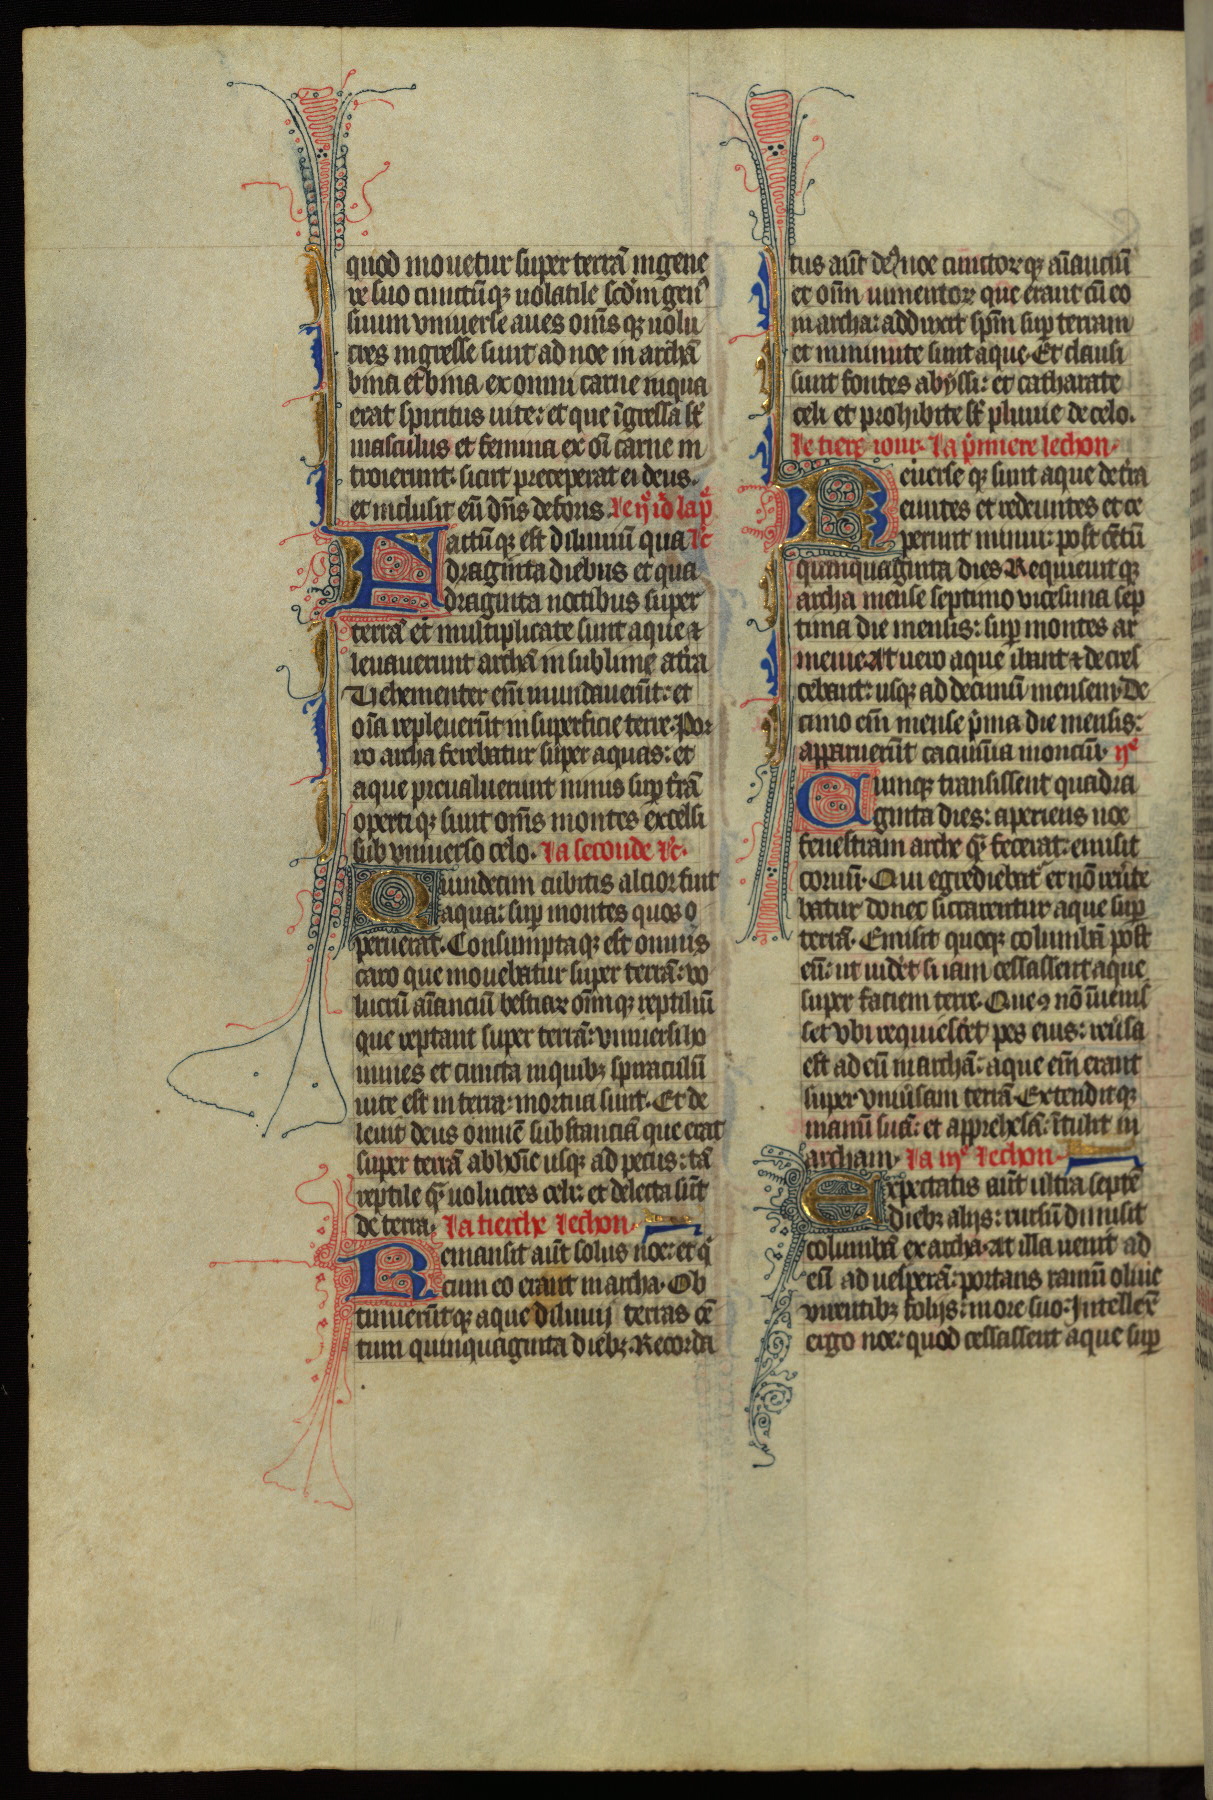 quod mouetur super terrā in gene
re suo cunctūq; uolatile scd'm gen9
suum vniuerse aues om̄s q; uolu
cres ingresse sunt ad noe in archā
bina et bina ex omni carne in qua
erat spiritus uite: et que īgressa st̄
masculus et femina ex oī carne in
troierunt. sicut preceperat ei deus.
et inclusit eū dn̄s deforis.
Factū q; est diluuiū qua
draginta diebus et qua
draginta noctibus super
terrā et multiplicate sunt aque ⁊
leuauerunt archā in sublime a tr̄a
Vehementer em̄ inundauerūt: et
oīa repleuerūt in superficie terre. Por
ro archa ferebatur super aquas: et
aque preualuerunt nimis sup tr̄ā
opertiq; sunt om̄s montes excelsi
sub vniuerso celo. La seconde lc̄.
Quindecim cubitis altior fuit
aqua: sup montes quos o
peruerat. Consumptaq; est omnis
caro que mouebatur super terrā: vo
lucrū aīanciū bestiaꝝ om̄q; reptiliū
que reptant super terrā: vniuersi ho
mines et cuncta in quib; spiraculū
uite est in terra: mortua sunt. Et de
leuit deus omnē substanciā que erat
super terrā ab hōīe usq; ad pecus: tā
reptile q̄ uolucres celi: et deleta sūt
de terra. La tierche lechon.
Remansit aūt solus noe: et q̄
cum eo erant in archa. Ob
tinuerūtq; aque diluuij terras cē
tum quinquaginta dieb;. Recorda
tus aūt de9 noe cunctorꝝq; aīanciū
et om̄ iumentoꝝ que erant cū eo
in archa: adduxit sp̄m sup terram
et minunte sunt aque. Et clausi
sunt fontes abyssi: et catharate
celi et prohibite st̄ pluuie de celo.
Le tiers iour. La p̄miere lechon.
Reuerse q; sunt aque de tr̄a
euntes et redeuntes et ce
perunt minui: post cētū
quinquaginta dies Requieuitq;
archa mense septimo vicesima sep
tima die mensis: sup montes ar
menie. At uero aque ibant ⁊ decres
cebant: usq; ad decimū mensem. De
cimo em̄ mense p̄ma die mensis:
apparuerūt cacumīa montiū. ije
Cunq; transissent quadra
ginta dies: aperiens noe
fenestram arche q̄ fecerat: emisit
coruū. Qui egrediebat' et nō reu'te
batur donec siccarentur aque sup
terrā. Emisit quoq; columbā post
eū: ut uidēt si iam cessassent aque
super faciem terre. Que 9 nō īuenis
set vbi requiescēt pes eius: reu'sa
est ad eū in archā: aque em̄ erant
super vniu'sam terrā. Extenditq;
manū suā: et apprehēsā: ītulit in
archam. La iije lechon.
Expectatis aūt ultra septē
dieb; alijs: rursū dimisit
columbā ex archa. At illa uenit ad
eū ad uesperā: portans ramū oliue
virentib; folijs: more suo. Intellex̄
ergo noe: quod cessassent aque sup